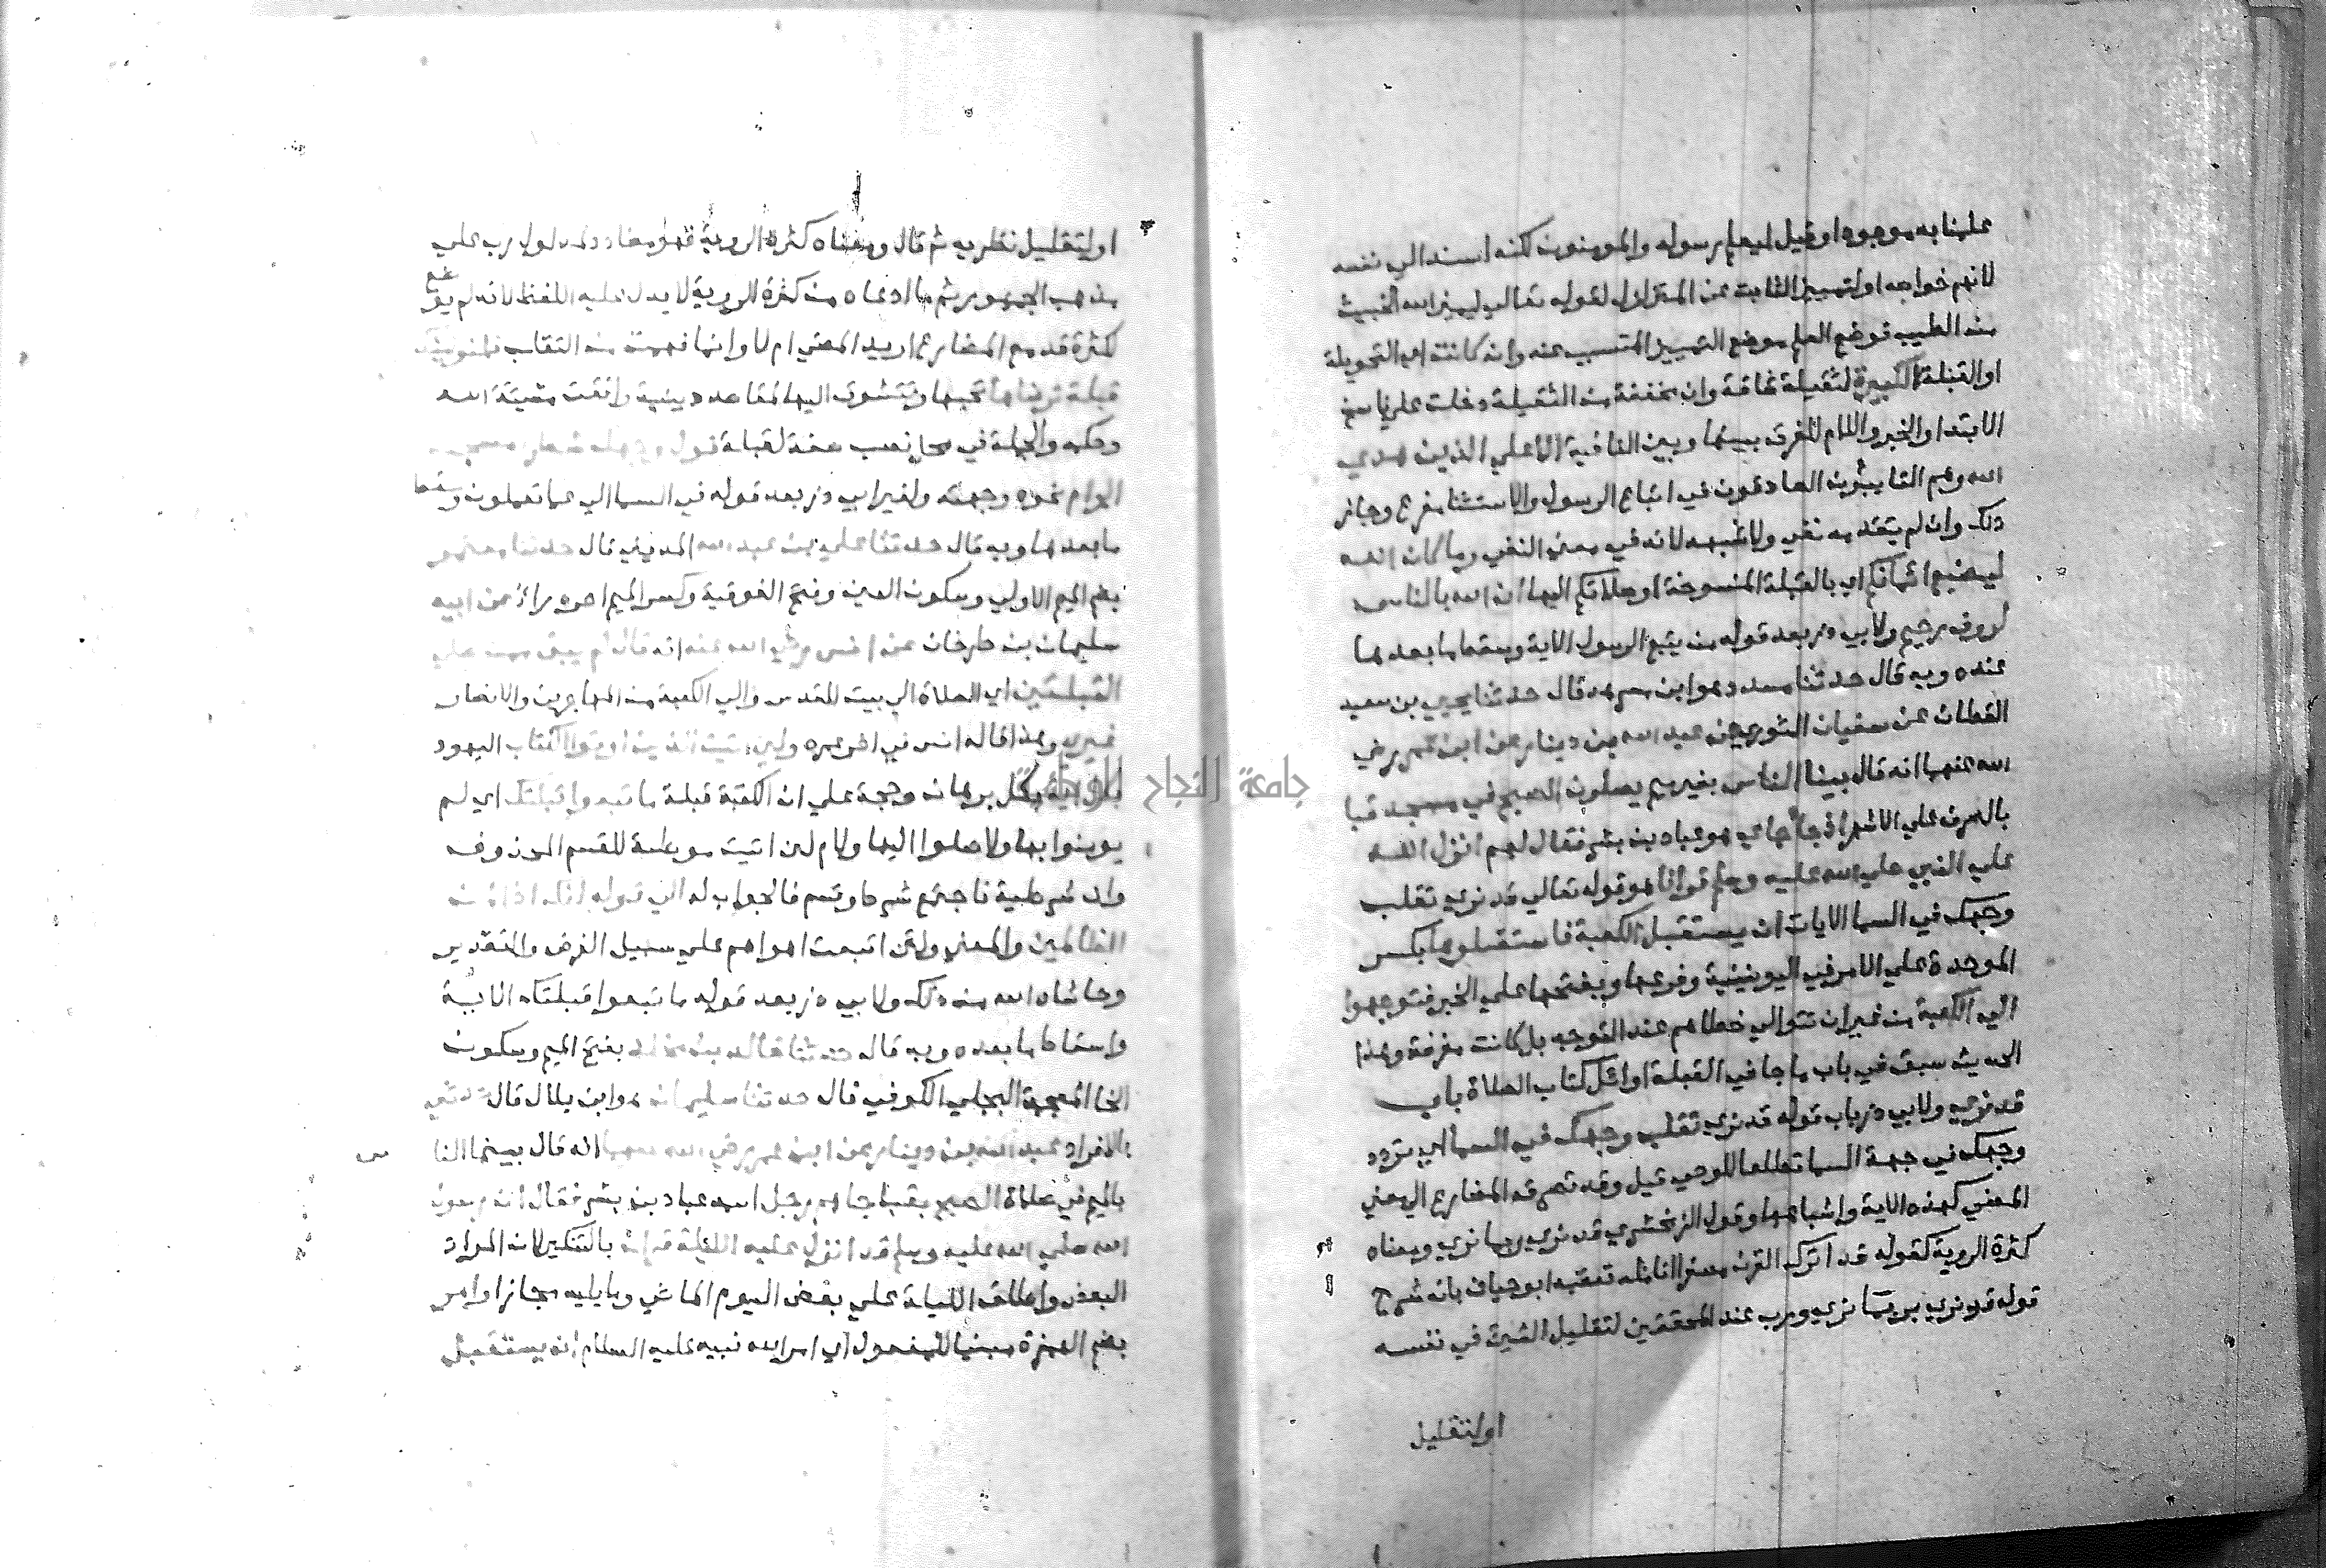 علمنا به موجودا وقيل ليعلم رسوله والمومنون لكنه اسند الي نفسه
لانهم خواصه او لتمييز الثابت عن المتزلزل لقوله تعالي ليميز الله الخبيث
من الطيب فوضع العلم موضع التمييز المتسبب عنه وان كانت اي التحويلة
او القبلة لكبيرة لثقيلة شاقة وان مخففة من الثقيلة دخلت علي ناسخ
الابتدا والخبر واللام للفرق بينها وبين النافية الا علي الذين هدي
الله وهم الثابتون الصادقون في اتباع الرسول والاستثنا مفرغ وجاز
ذلك وان لم يتقدمه نفي ولا شبهه لانه في معني النفي وما كان الله
ليضيع ايمانكم اي بالقبلة المنسوخة او صلاتكم اليها ان الله بالناس
لروف رحيم ولابي ذر بعد قوله من يتبع الرسول الاية وسقط ما بعدها
عنده وبه قال حدثنا مسدد هو ابن مسرهد قال حدثنا يحيي بن سعيد
القطان عن سفيان الثوري عن عبد الله بن دينار عن ابن عمر رضي
الله عنهما انه قال بينا الناس بغير ميم يصلون الصبح في مسجد قبا
بالصرف علي الاشهر اذ جا جاي هو عباد بن بشر فقال لهم انزل الله
علي النبي صلي الله عليه وسلم قرانا هو قوله تعالي قد نري تقلب
وجهك في السما الايات ان يستقبل الكعبة فاستقبلوها بكسر
الموحدة علي الامر في اليونينية وفرعها وبفتحها علي الخبر فتوجهوا
الي الكعبة من غير ان تتوالي خطاهم عند التوجه بل كانت مفرقة وهذا
الحديث سبق في باب ما جا في القبلة اوائل كتاب الصلاة باب
قد نري ولابي ذر باب قوله قد نري تقلب وجهك في السما اي تردد
وجهك في جهة السما تطلعا للوحي قيل وقد تصرف المضارع الي معني
المضي كهذه الاية واشباهها وقول الزمخشري قد نري ربما نري ومعناه
كثرة الروية كقوله قد اترك القرن مصفرا انامله تعقبه ابو حيان بانه شرح
قوله قد نري بربما نري ورب عند المحققين لتقليل الشي في نفسه
او لتقليل
او لتقليل نظيره ثم قال ومعناه كثرة الروية فهو مضاد لمدلول رب علي
مذهب الجمهور ثم ما ادعاه من كثرة الروية لا يدل عليه اللفظ لانه لم يوضع
لكثرة قد مع المضارع اريد المضي ام لا وانما فهمت من التقلب فلنولينك
قبلة ترضاها تحبها وتتشوق اليها لمقاصد دينية وافقت مشيئة الله
وحكمه والجملة في محل نصب صفة لقبلة فول وجهك شطر المسجد
الحرام نحوه وجهته ولغير ابي ذر بعد قوله في السما الي عما تعملون وسقط
ما بعدها وبه قال حدثنا علي بن عبد الله المديني قال حدثنا معتمر
بضم الميم الاولي وسكون العين وفتح الفوقية وكسر الميم اخره راء عن ابيه
سليمان بن طرخان عن انس رضي الله عنه انه قال لم يبق ممن صلي
القبلتين اي الصلاة الي بيت المقدس والي الكعبة من المهاجرين والانصار
غيري وهذا قاله انس في اخر عمره ولئن اتيت الذين اوتوا الكتاب اليهود
بكل برهان وحجة علي ان الكعبة قبلة ما تبعوا قبلتك اي لم
يومنوا بها ولا صلوا اليها ولام لئن اتيت موطئة للقسم المحذوف
وان شرطية فاجتمع شرط وقسم فالجواب له الي قوله انك اذا لمن
الظالمين والمعني ولئن اتبعت اهواهم علي سبيل الفرض والتقدير
وحاشاه الله من ذلك ولابي ذر بعد قوله ما تبعوا قبلتك الاية
واسقط ما بعده وبه قال حدثنا خالد بن مخلد بفتح الميم وسكون
الخا المعجمة البجلي الكوفي قال حدثنا سليمان هو ابن بلال قال حدثني
بالافراد عبد الله بن دينار عن ابن عمر رضي الله عنهما انه قال بينما الناس
بالميم في صلاة الصبح بقبا جاهم رجل اسمه عباد بن بشر فقال ان رسول
الله صلي الله عليه وسلم قد انزل عليه الليلة قران بالتنكير لان المراد
البعض واطلاق الليلة علي بعض اليوم الماضي وما يليه مجازا وامر
بضم الهمزة مبنيا للمفعول اي امر الله نبيه عليه السلام ان يستقبل
جامعة النجاح الوطنية